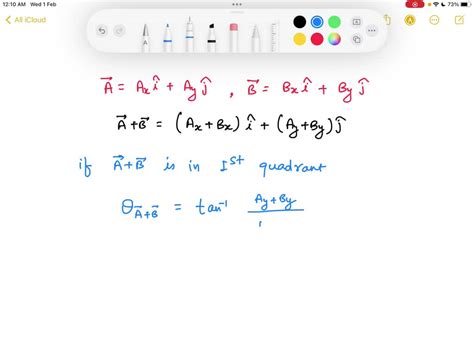 12:10 AM Wed 1 Feb 73%
All iCloud
A⃗ = Aₓ î + Aᵧ ĵ , B⃗ = Bₓ î + Bᵧ ĵ
A⃗ + B⃗ = (Aₓ + Bₓ) î + (Aᵧ + Bᵧ) ĵ
if A⃗ + B⃗ is in Iˢᵗ quadrant
θ_A⃗+B⃗ = tan⁻¹ Aᵧ + Bᵧ